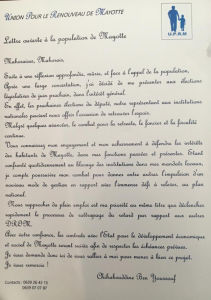 UNION POUR LE RENOUVEAU DE MAYOTTE
U.P.R.M
Lettre ouverte à la population de Mayotte
Mahoraises, Mahorais,
Suite à une réflexion approfondie, mûrie, et face à l'appel de la population,
Après une large concertation, j'ai décidé de me présenter aux élections
législatives de juin prochain, dans l'intérêt général.
En effet, les prochaines élections de député, notre représentant aux institutions
nationales peuvent nous offrir l'occasion de retrouver l'espoir.
Malgré quelques avancées, le combat pour la retraite, le foncier et la fiscalité
continue.
Vous connaissez mon engagement et mon acharnement à défendre les intérêts
des habitants de Mayotte, dans mes fonctions passées et présentes. Etant
confronté quotidiennement au blocage des institutions dans mes mandats locaux,
je compte poursuivre mon combat pour donner entre autres l'impulsion d'un
nouveau mode de gestion en rapport avec l'immense défi à relever, au plan
national.
Nous rapprocher du plus simple est ma priorité au même titre que déclencher
rapidement le processus de rattrapage du retard par rapport aux autres
DROM.
Avec votre confiance, les contrats avec l'Etat pour le développement économique
et social de Mayotte seront suivis afin de respecter les échéances prévues.
Je vous demande donc ici de vous rallier à moi pour rebâtir et changer le pays.
Je vous remercie !
Chihabouddine Ben Youssouf
Contacts : 0639 26 42 15
0639 07 07 87